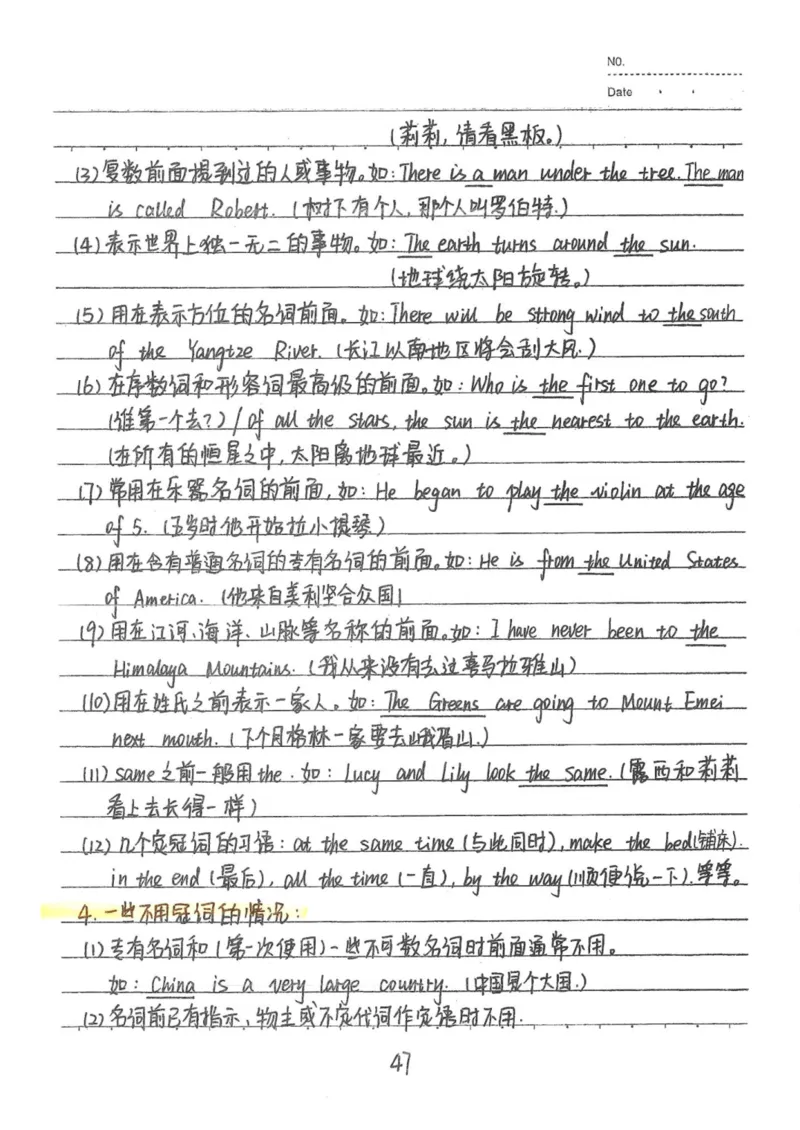 NO.
Date
(莉莉,请看黑板。)
(3)复数前面提到过的人或事物。如:There is a man under the tree. The man
is called Robert. (树下有个人,那个人叫罗伯特.)
(4)表示世界上独一无二的事物。如: The earth turns around the sun.
(地球绕太阳旋转。)
(5)用在表示方位的名词前面。如:There will be strong wind to the south
of the Yangtze River. (长江以南地区将会刮大风.)
(6)在序数词和形容词最高级的前面。如:Who is the first one to go?
(谁第一个去?) / Of all the stars, the sun is the nearest to the earth.
(在所有的恒星之中,太阳离地球最近。)
(7)常用在乐器名词的前面,如: He began to play the violin at the age
of 5. (五岁时他开始拉小提琴)
(8)用在含有普通名词的专有名词的前面。如:He is from the United States
of America. (他来自美利坚合众国)
(9)用在江河、海洋、山脉等名称的前面。如: I have never been to the
Himalaya Mountains. (我从来没有去过喜马拉雅山)
(10)用在姓氏之前表示一家人。如: The Greens are going to Mount Emei
next mouth. (下个月格林一家要去峨眉山.)
(11) same 之前一般用 the. 如: Lucy and Lily look the same. (露西和莉莉
看上去长得一样)
(12) 几个定冠词的习语: at the same time (与此同时), make the bed(铺床).
in the end (最后), all the time (一直), by the way (顺便说一下).等等。
4. 一些不用冠词的情况:
(1)专有名词和(第一次使用)一些不可数名词时前面通常不用。
如: China is a very large country. (中国是个大国.)
(2)名词前已有指示、物主或不定代词作定语时不用.
47